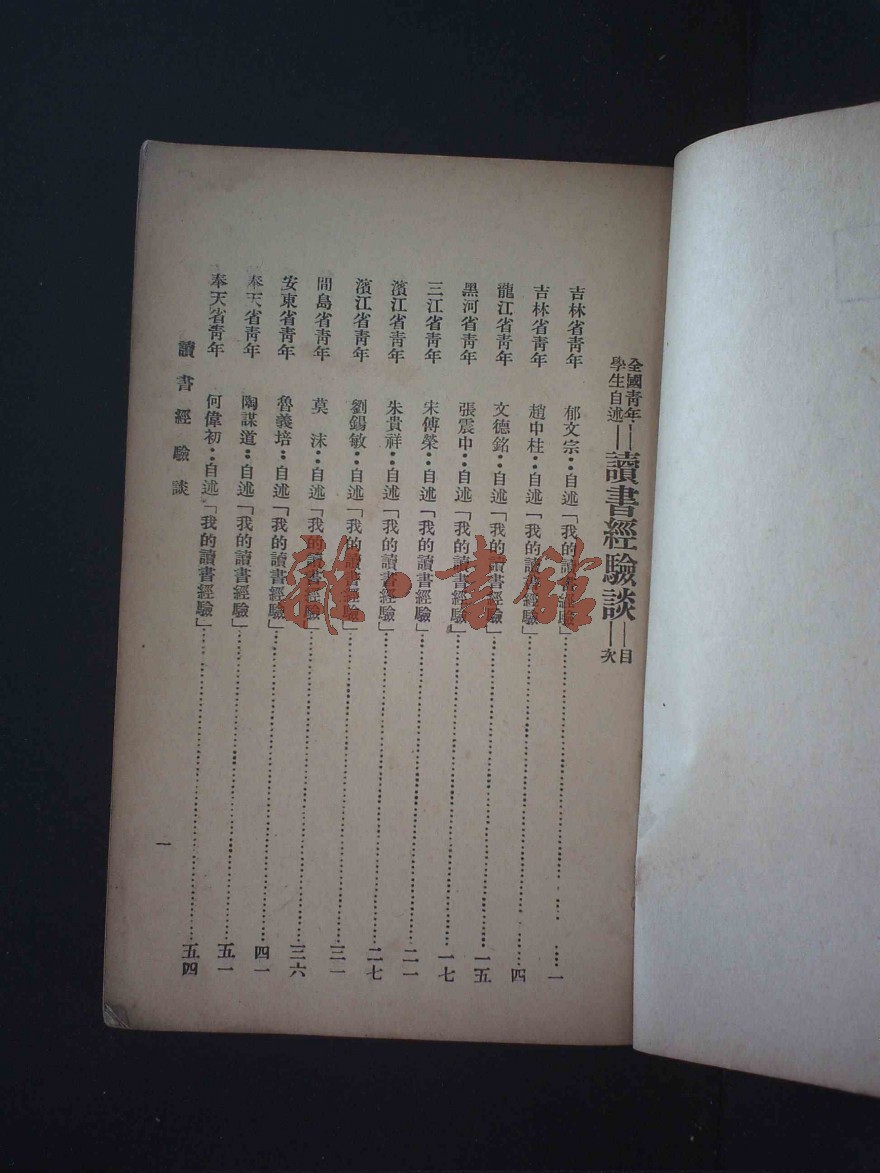 全國青年
學生自述——讀書經驗談——目次
吉林省青年 郁文宗：自述「我的讀書經驗」……一
吉林省青年 趙中柱：自述「我的讀書經驗」……四
龍江省青年 文德銘：自述「我的讀書經驗」……一五
黑河省青年 張震中：自述「我的讀書經驗」……一七
三江省青年 宋傅榮：自述「我的讀書經驗」……二一
濱江省青年 朱貴祥：自述「我的讀書經驗」……二七
濱江省青年 劉錫敏：自述「我的讀書經驗」……三一
間島省青年 莫沫：自述「我的讀書經驗」……三六
安東省青年 魯義培：自述「我的讀書經驗」……四一
奉天省青年 陶謀道：自述「我的讀書經驗」……五一
奉天省青年 何偉初：自述「我的讀書經驗」……五四
讀書經驗談
一
雜·書館